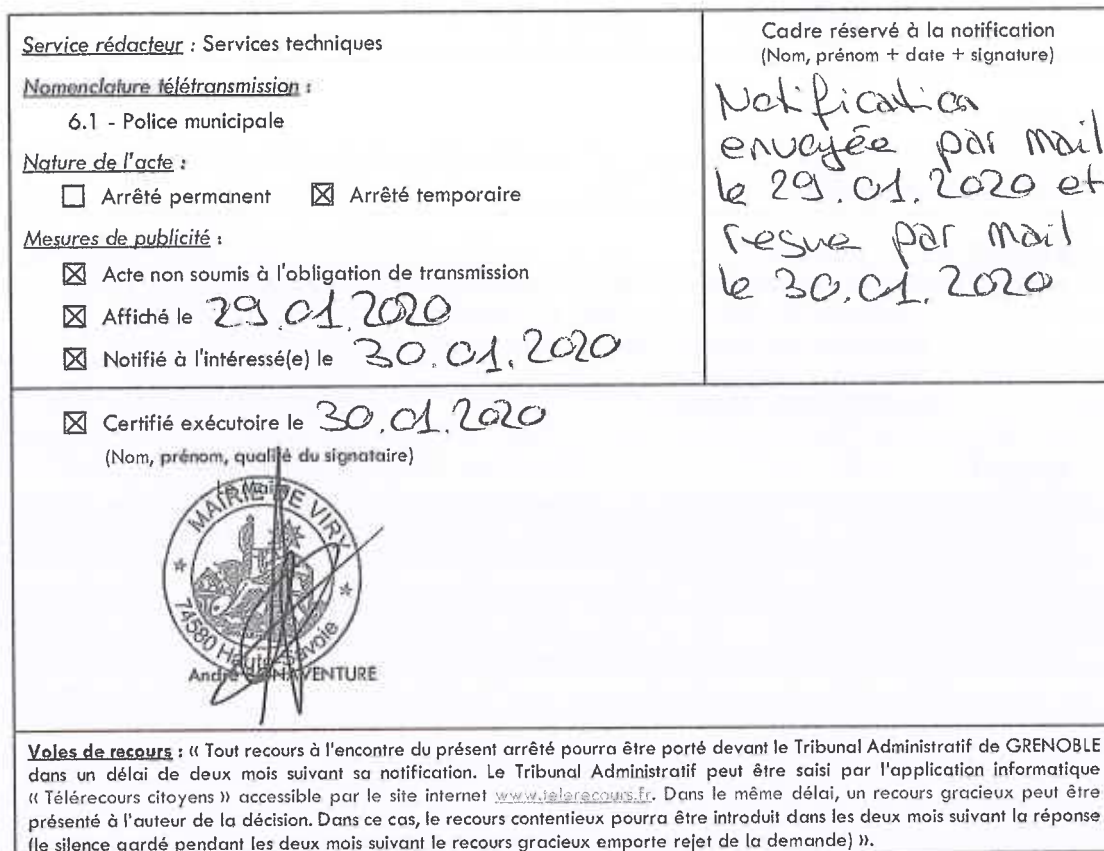 Service rédacteur : Services techniques
Nomenclature télétransmission :
6.1 - Police municipale
Nature de l'acte :
☐ Arrêté permanent ☒ Arrêté temporaire
Mesures de publicité :
☒ Acte non soumis à l'obligation de transmission
☒ Affiché le 29.01.2020
☒ Notifié à l'intéressé(e) le 30.01.2020
Cadre réservé à la notification
(Nom, prénom + date + signature)
Notification
envoyée par mail
le 29.01.2020 et
resue par mail
le 30.01.2020
☒ Certifié exécutoire le 30.01.2020
(Nom, prénom, qualité du signataire)
Le Maire
MAIRIE DE VIRY
74580 Haute-Savoie
André BONAVENTURE
Voies de recours : « Tout recours à l'encontre du présent arrêté pourra être porté devant le Tribunal Administratif de GRENOBLE
dans un délai de deux mois suivant sa notification. Le Tribunal Administratif peut être saisi par l'application informatique
« Télérecours citoyens » accessible par le site internet www.telerecours.fr. Dans le même délai, un recours gracieux peut être
présenté à l'auteur de la décision. Dans ce cas, le recours contentieux pourra être introduit dans les deux mois suivant la réponse
(le silence gardé pendant les deux mois suivant le recours gracieux emporte rejet de la demande) ».